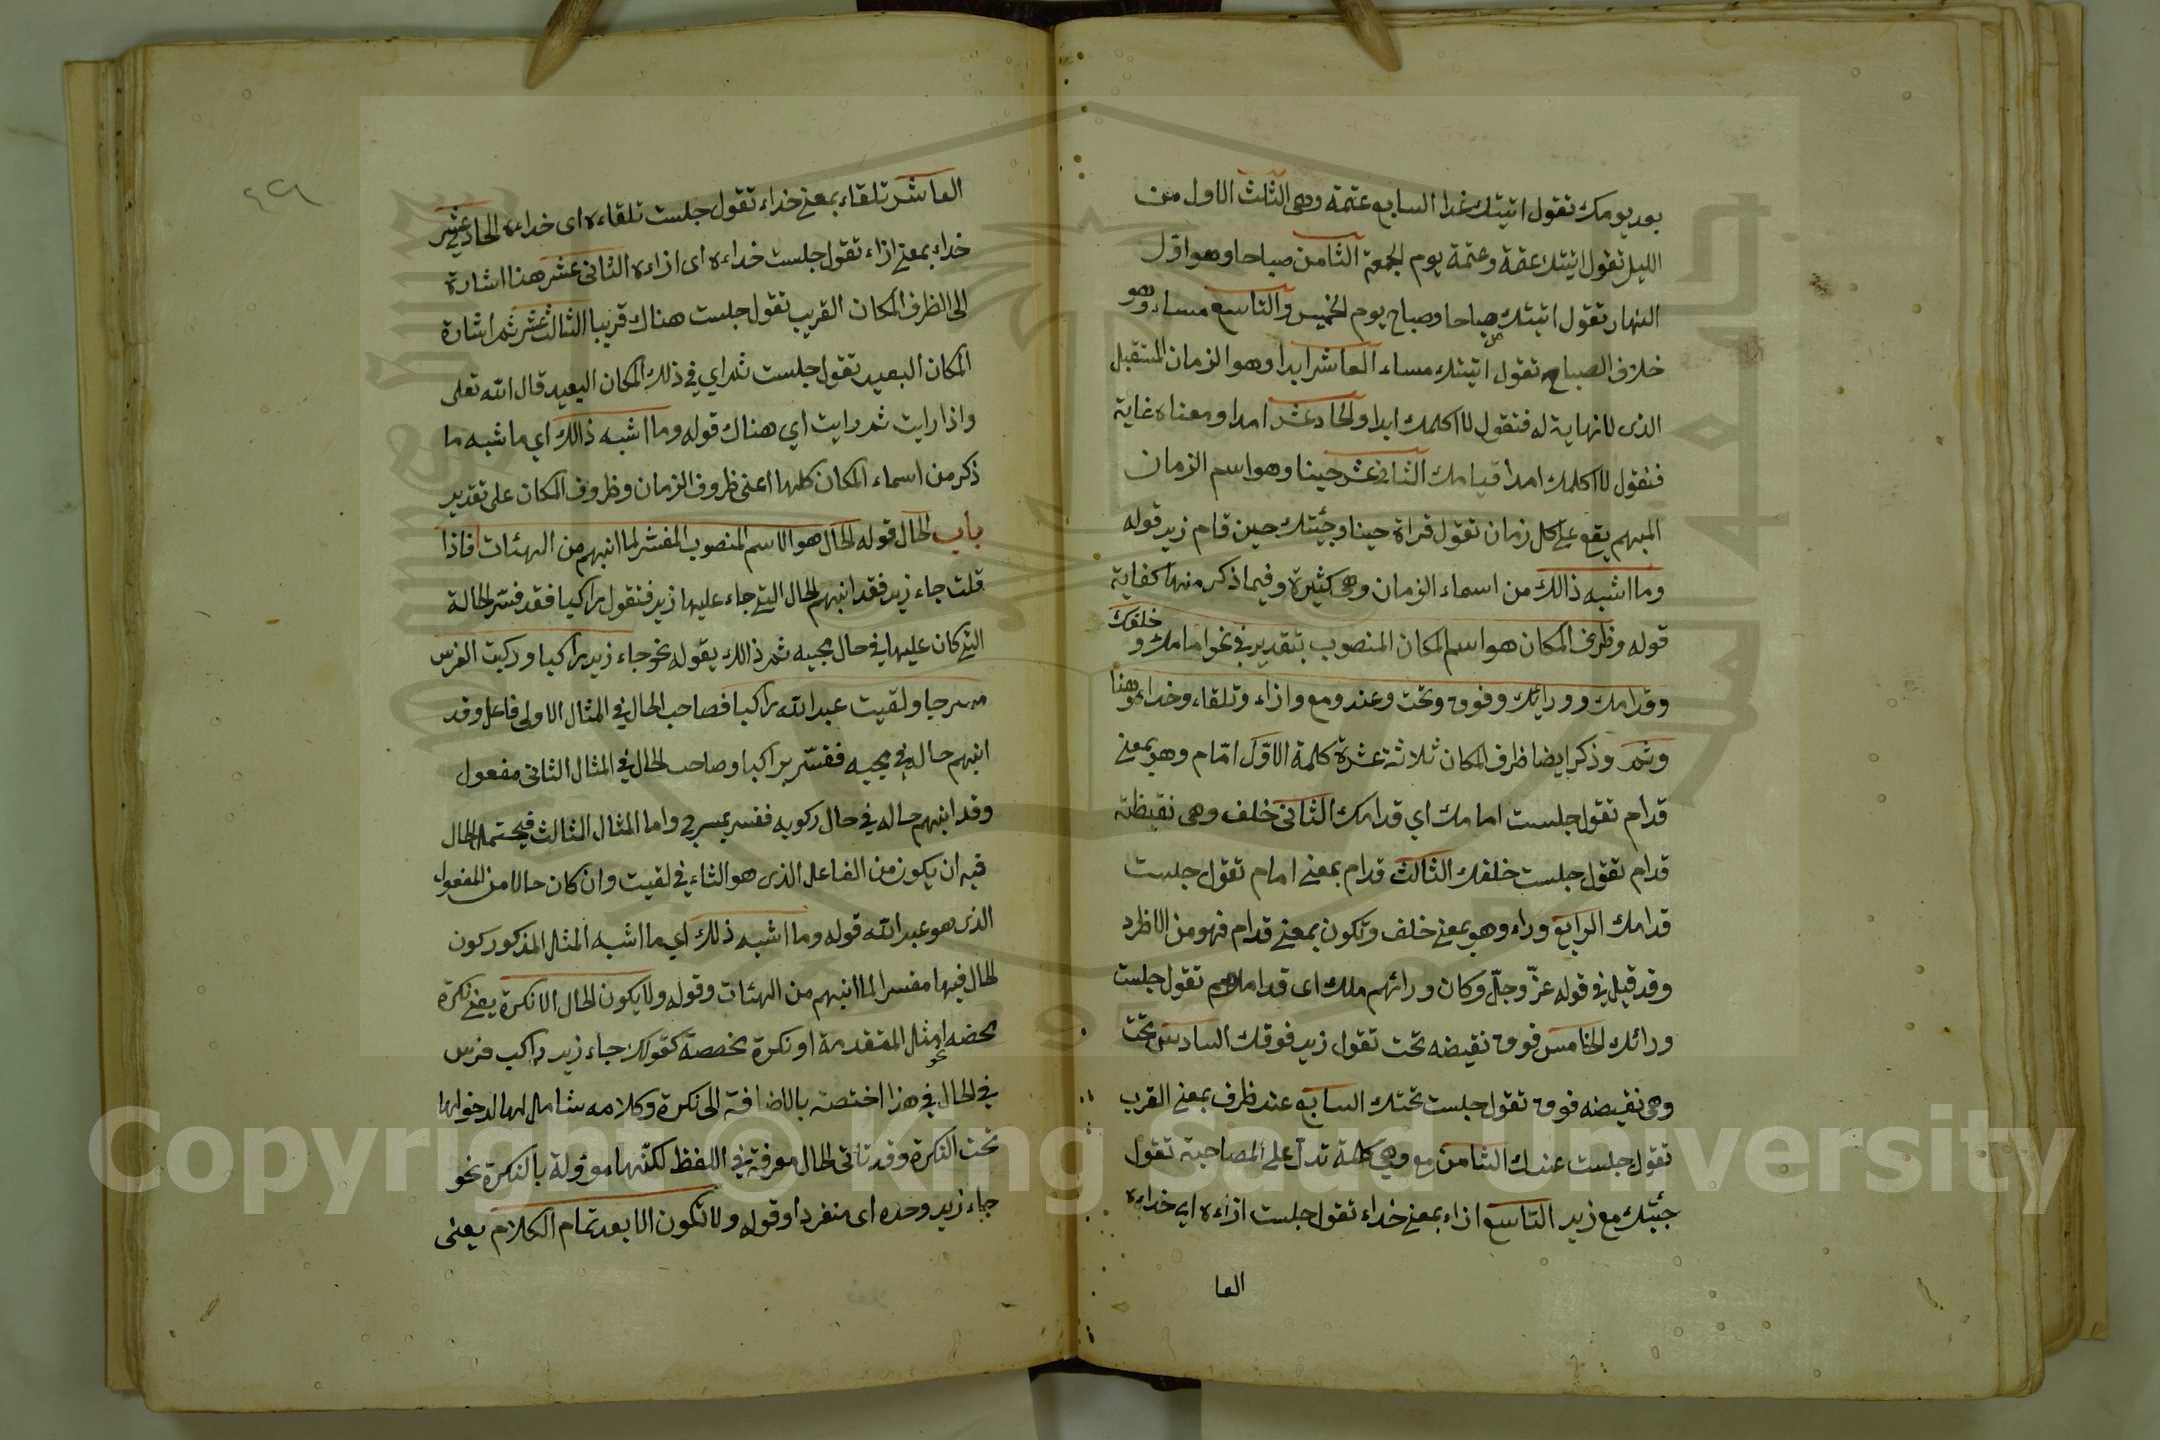 بعد يومك تقول اتيتك غدا السابع عتمة وهى الثلث الاول من
الليل تقول اتيتك عتمة وعتمة يوم الجمعة الثامن صباحا وهو اول
النهار تقول اتيتك صباحا وصباح يوم الخميس والتاسع مساء وهو
خلاف الصباح تقول اتيتك مساء العاشر ابدا وهو الزمان المستقبل
الذى لا نهاية له فتقول لا اكلمك ابدا والحادعشر امدا ومعناه غاية
فتقول لا اكلمك امدا قيامك الثانى عشر حينا وهو اسم الزمان
المبهم يقع على كل زمان تقول قراة حينا وجئتك حين قام زيد قوله
وما اشبه ذالك من اسماء الزمان وهى كثيرة وفيما ذكر منها كفاية
قوله وظرف المكان هو اسم المكان المنصوب بتقدير فى نحو امامك و خلفك
وقدامك وورائك وفوق وتحت وعند ومع وازاء وتلقاء وخداء وهنا
وثم وذكر ايضا ظرف المكان ثلاثة عشرة كلمة الاول امام وهو بمعنى
قدام تقول جلست امامك اي قدامك الثانى خلف وهى نقيظة
قدام تقول جلست خلفك الثالث قدام بمعنى امام تقول جلست
قدامك الرابع وراء وهو بمعنى خلف وتكون بمعنى قدام فهو من الاظرد
وقد قيل فى قوله عز وجل وكان ورائهم ملك اى قدامهم تقول جلست
ورائك الخامس فوق نقيضه تحت تقول زيد فوقك السادس تحت
وهى نقيضه فوق تقول جلست تحتك السابع عند ظرف بمعنى القرب
تقول جلست عندك الثامن مع وهي كلمة تدل على المصاحبة تقول
جئتك مع زيد التاسع ازاء بمعنى خداء تقول جلست ازاءه اي خداءه
العا
العاشر تلقاء بمعنى خداء تقول جلست تلقاءه اى خداءه الحادي عشر
خداء بمعنى ازاء تقول جلست خداءه اى ازاءه الثانى عشر هنا اشارة
الى الظرف المكان القريب تقول جلست هناك قريبا الثالث عشر ثم اشارة
المكان البعيد تقول جلست ثم اي في ذلك المكان البعيد قال الله تعلى
واذا رايت ثم رايت اي هناك قوله وما اشبه ذالك اي ما شبه ما
ذكر من اسماء المكان كلها اعنى ظروف الزمان وظروف المكان على تقدير
باب الحال قوله الحال هو الاسم المنصوب المفسر لما انبهم من الهئات فاذا
قلت جاء زيد فقد انبهم الحال التي جاء عليها زيد فتقول راكبا فقد فسر الحالة
التي كان عليها في حال مجيه ثم ذالك بقوله نحو جاء زيد راكبا وركبت الفرس
مسرجا ولقيت عبد الله راكبا فصاحب الحال في المثال الاولى فاعل وقد
انبهم حاله في مجيه ففسر براكبا وصاحب الحال في المثال الثانى مفعول
وقد انبهم حاله في حال ركوبه ففسر بمسرجا واما المثال الثالث فيحتمل الحال
فيه ان يكون من الفاعل الذى هو التاء في لقيت وان كان حالا من المفعول
الذى هو عبد الله قوله وما اشبه ذلك اي ما اشبه المثل المذكور كون
الحال فيها مفسرا لما انبهم من الهئات وقوله ولا يكون الحال الا نكرة يعنى نكرة
محضه امثل المتقدمة او نكرة مخصصة كقولك جاء زيد راكب فرس
في الحال في هذا اختصت بالاضافة الى نكرة وكلامه شامل لها لدخولها
تحت النكرة وقد تاتى الحال معرفة في اللفظ لكنها مؤولة بالنكرة نحو
جاء زيد وحده اى منفردا وقوله ولا تكون الا بعد تمام الكلام يعنى
Copyright © King Saud University